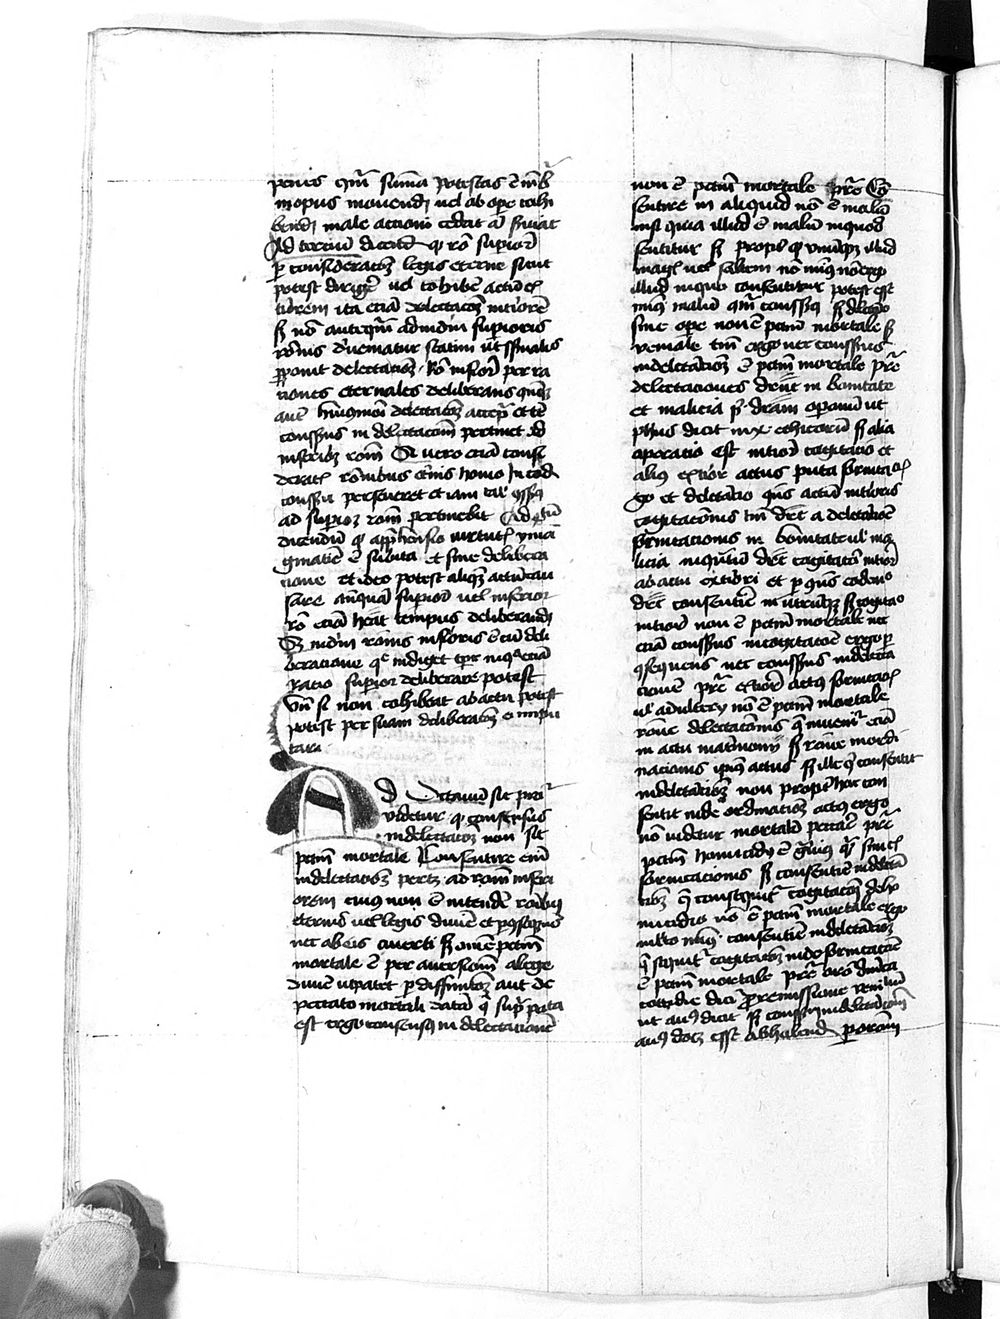 penes quam summa potestas est membra
in opus movendi vel ab opere cohi
bendi male actioni cedat aut serviat
Ad tercium dicendum quod ratio superior
per consideracionem legis eterne sicut
potest dirigere vel cohibere actum ex
teriorem ita eciam delectacionem interiorem
sed non antequam ad iudicium superioris
rationis deveniatur statim ut sensualitas
proponit delectacionem Ratio inferior per ra
tiones eternales deliberans quandoque
autem huiusmodi delectacionem acceptat et tunc
consensus in delectacionem pertinet ad
inferiorem rationem Si vero eciam consi
deratis rationibus eternis homo in eodem
consensu perseveret etiam talis consensus
ad superiorem rationem pertinebit Ad quartum
dicendum quod apprehensio virtutis yma
ginative est subita et sine delibera
tione et ideo potest aliquem actum cau
sare antequam superior vel inferior
ratio eciam habeat tempus deliberandi
Sed iudicium rationis inferioris est cum deli
beracione que indiget tempore in quo eciam
ratio superior deliberare potest
Unde si non cohibeat ab actu potest
potest per suam deliberacionem ei impu
tari
Ad Octavum sic proce
videtur quod consensus
in delectacionem non sit
peccatum mortale Consentire enim
in delectacionem pertinet ad rationem inferi
orem cuius non est intendere rationibus
eternis vel legis divine et per consequens
nec ab eis averti sed omne peccatum
mortale est per aversionem a lege
divina ut patet per diffinicionem aug de
peccato mortali datam que supra posita
est ergo consensus in delectacionem
non est peccatum mortale preterea Con
sentire in aliquid non est malum
nisi quia illud est malum in quod
sentitur sed propter quod unumquodque illud
magis vel saltem non minus non ergo
illud in quo consentitur potest esse
minus malum quam consensus sed delectacio
sine opere non est peccatum mortale sed
veniale tantum ergo nec consensus
in delectacionem est peccatum mortale preterea
delectaciones differunt in bonitate
et malicia secundum differenciam operacionum ut
phus dicit in x ethicorum sed alia
operatio est interior cogitatio et
alius exterior actus puta fornicacionis er
go et delectatio consequens actum interioris
cogitacionis tantum differt a delectacione
fornicacionis in bonitate vel ma
licia inquantum differt cogitatio interior
ab actu exteriori et per consequens eodem modo
differt consentire in utrumque sed cogitatio
interior non est peccatum mortale nec
eciam consensus in cogitatione ergo per
consequens nec consensus in delecta
tionem preterea exterior actus fornicacionis
vel adulterii non est peccatum mortale
ratione delectationis que invenitur eciam
in actu matrimonii sed ratione inordi
nacionis ipsius actus sed ille qui consentit
in delectationem non propter hoc con
sentit in deordinationem actus ergo
non videtur mortaliter peccare preterea
peccatum homicidii est gravius quam simplicis
fornicacionis sed consentire in delecta
tionem que consequitur cogitationem de ho
micidio non est peccatum mortale ergo
multo minus consentire in delectationem
que sequitur cogitationem de fornicatione
est peccatum mortale preterea oratio dominica
cottidie dicitur pro remissione venialium
ut aug dicit sed consensum in delectationem
aug docet esse abolendum per orationem